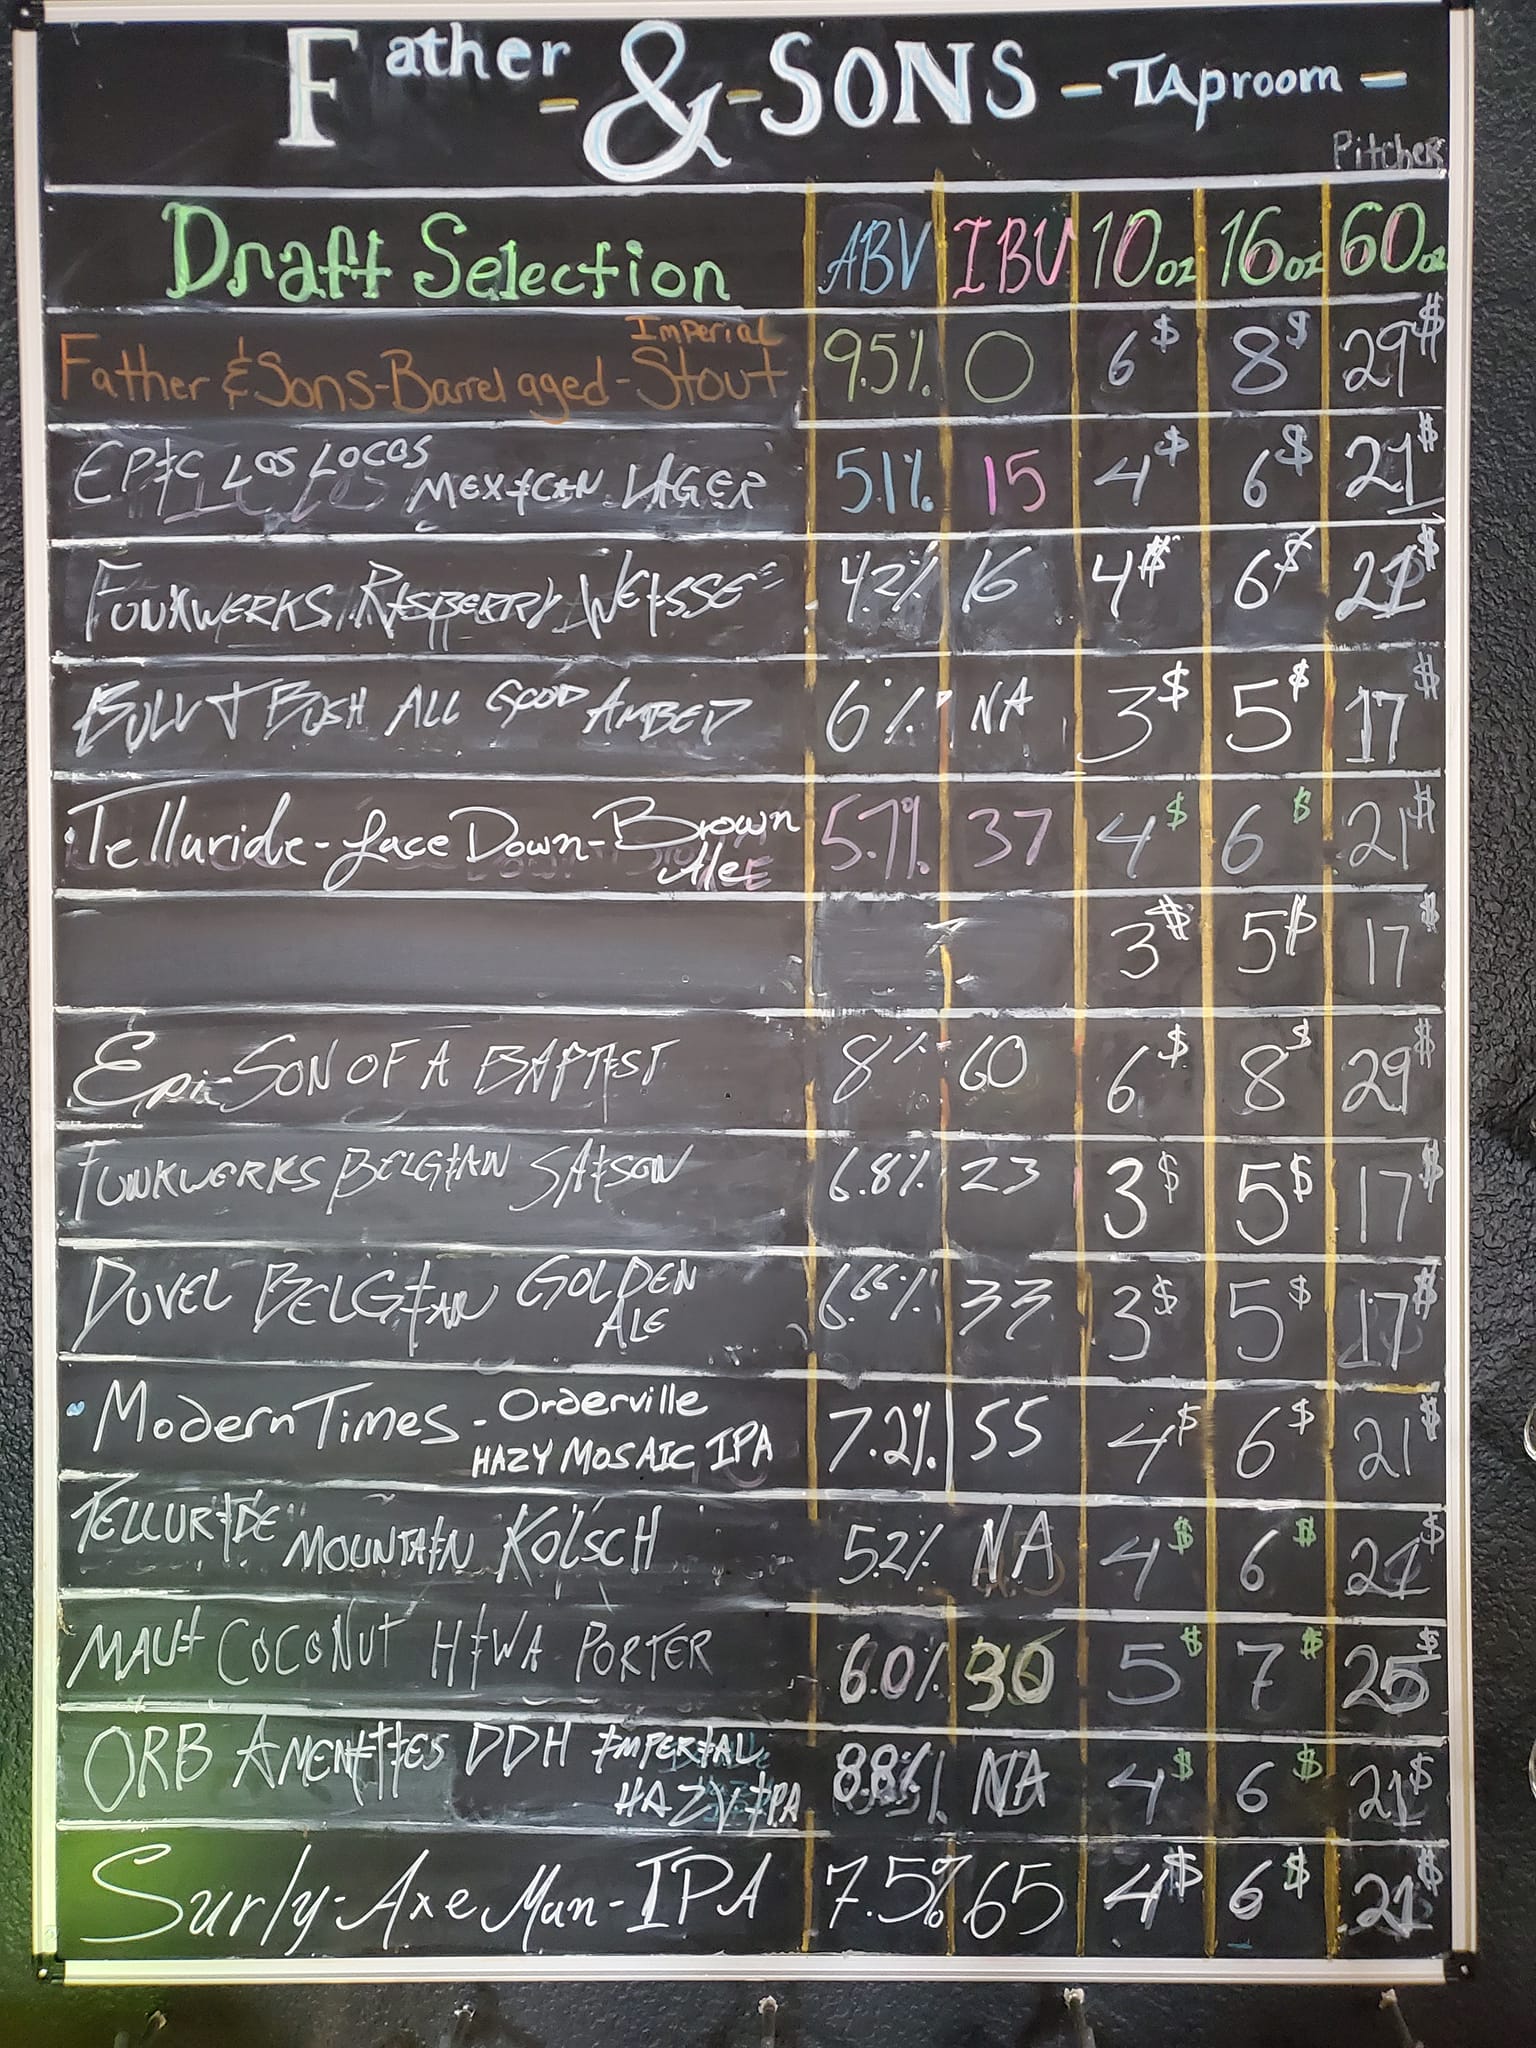 Father - & - SONS - TAproom -
Pitchers
Draft Selection ABV IBU 10oz 16oz 60oz
Father & Sons-Barrel aged-Imperial Stout 9.5% 0 6$ 8$ 29$
EPIC LOS LOCOS MEXICAN LAGER 5.1% 15 4$ 6$ 21$
FUNKWERKS RASPBERRY WEISSE 4.2% 16 4$ 6$ 21$
BULL & BUSH ALL GOOD AMBER 6% NA 3$ 5$ 17$
Telluride-face Down-Brown Ale 5.7% 37 4$ 6$ 21$
3$ 5$ 17$
Epic SON OF A BAPTIST 8% 60 6$ 8$ 29$
FUNKWERKS BELGIAN SAISON 6.8% 23 3$ 5$ 17$
DUVEL BELGIAN GOLDEN ALE 6.66% 33 3$ 5$ 17$
Modern Times - Orderville HAZY MOSAIC IPA 7.2% 55 4$ 6$ 21$
TELLURIDE MOUNTAIN KÖLSCH 5.2% NA 4$ 6$ 21$
MAUI COCONUT HIWA PORTER 6.0% 30 5$ 7$ 25$
ORB AMENITIES DDH IMPERIAL HAZY IPA 8.8% NA 4$ 6$ 21$
Surly-Axe Man-IPA 7.5% 65 4$ 6$ 21$